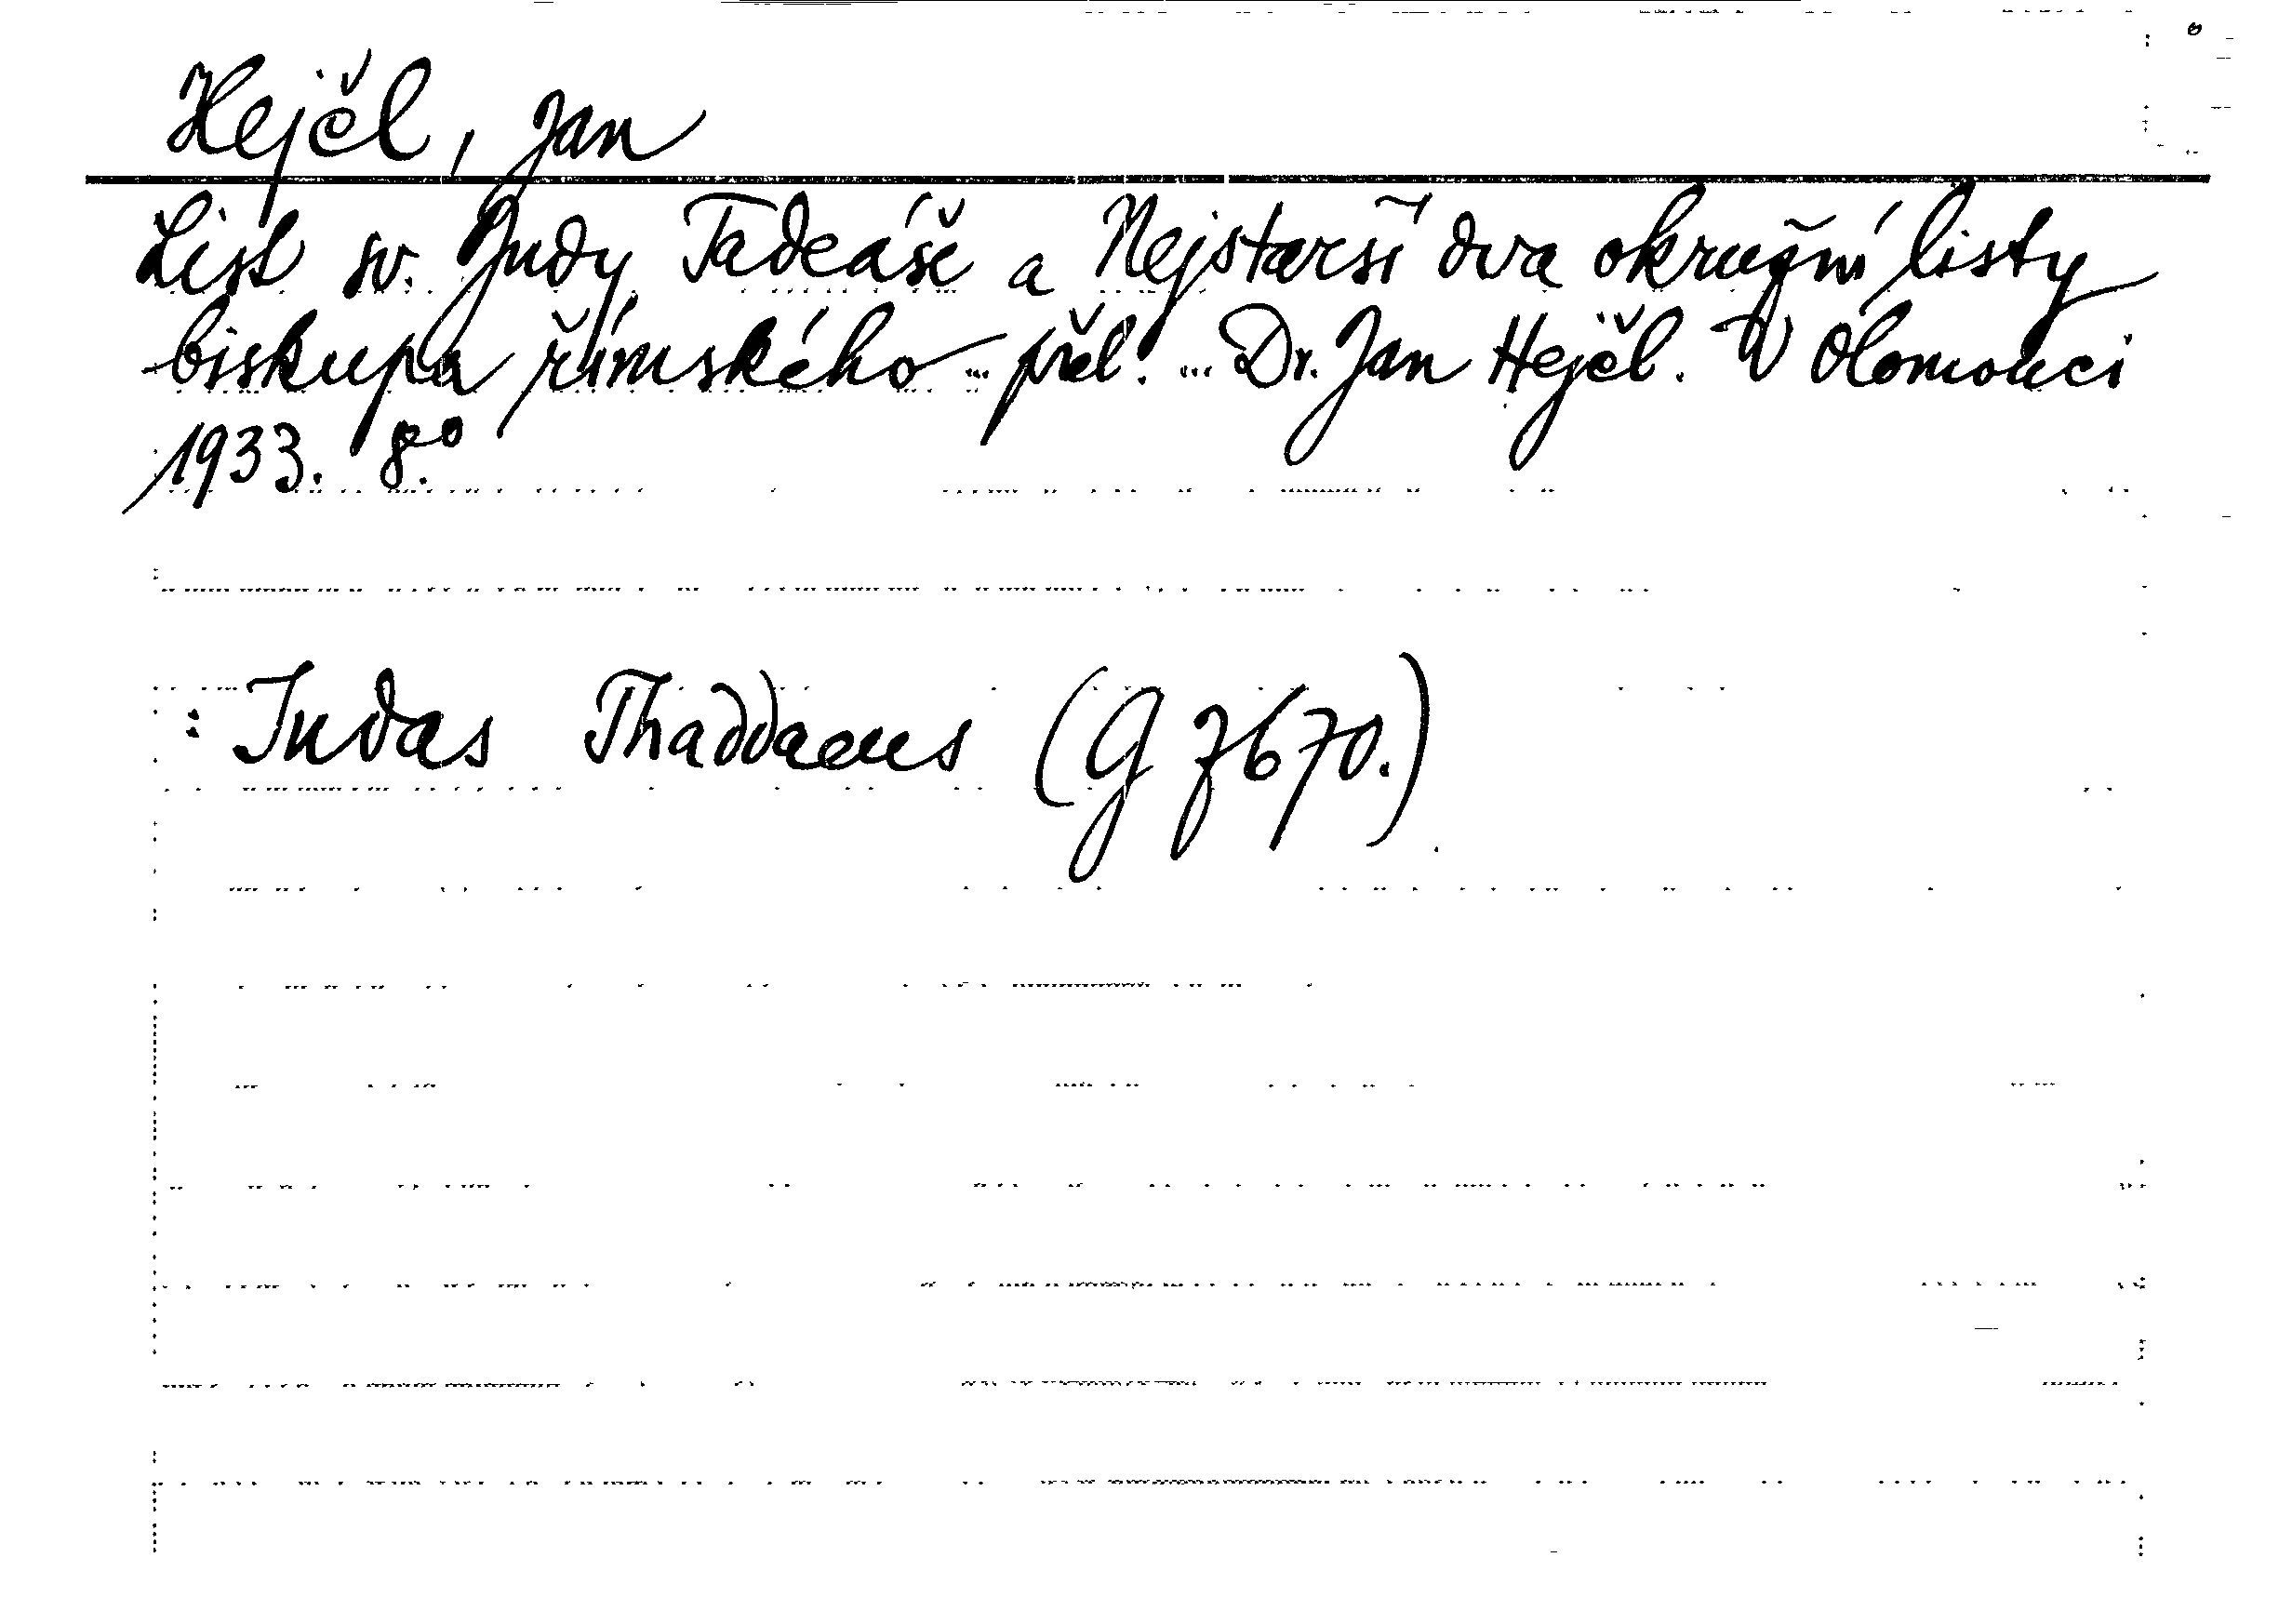 Hejčl, Jan
List sv. Judy Tadeáše a Nejstarší dva okružní listy
biskupa římského ... přel. ... Dr. Jan Hejčl. V Olomouci
1933. 8.°
: Judas Thaddaeus (G 7670.)